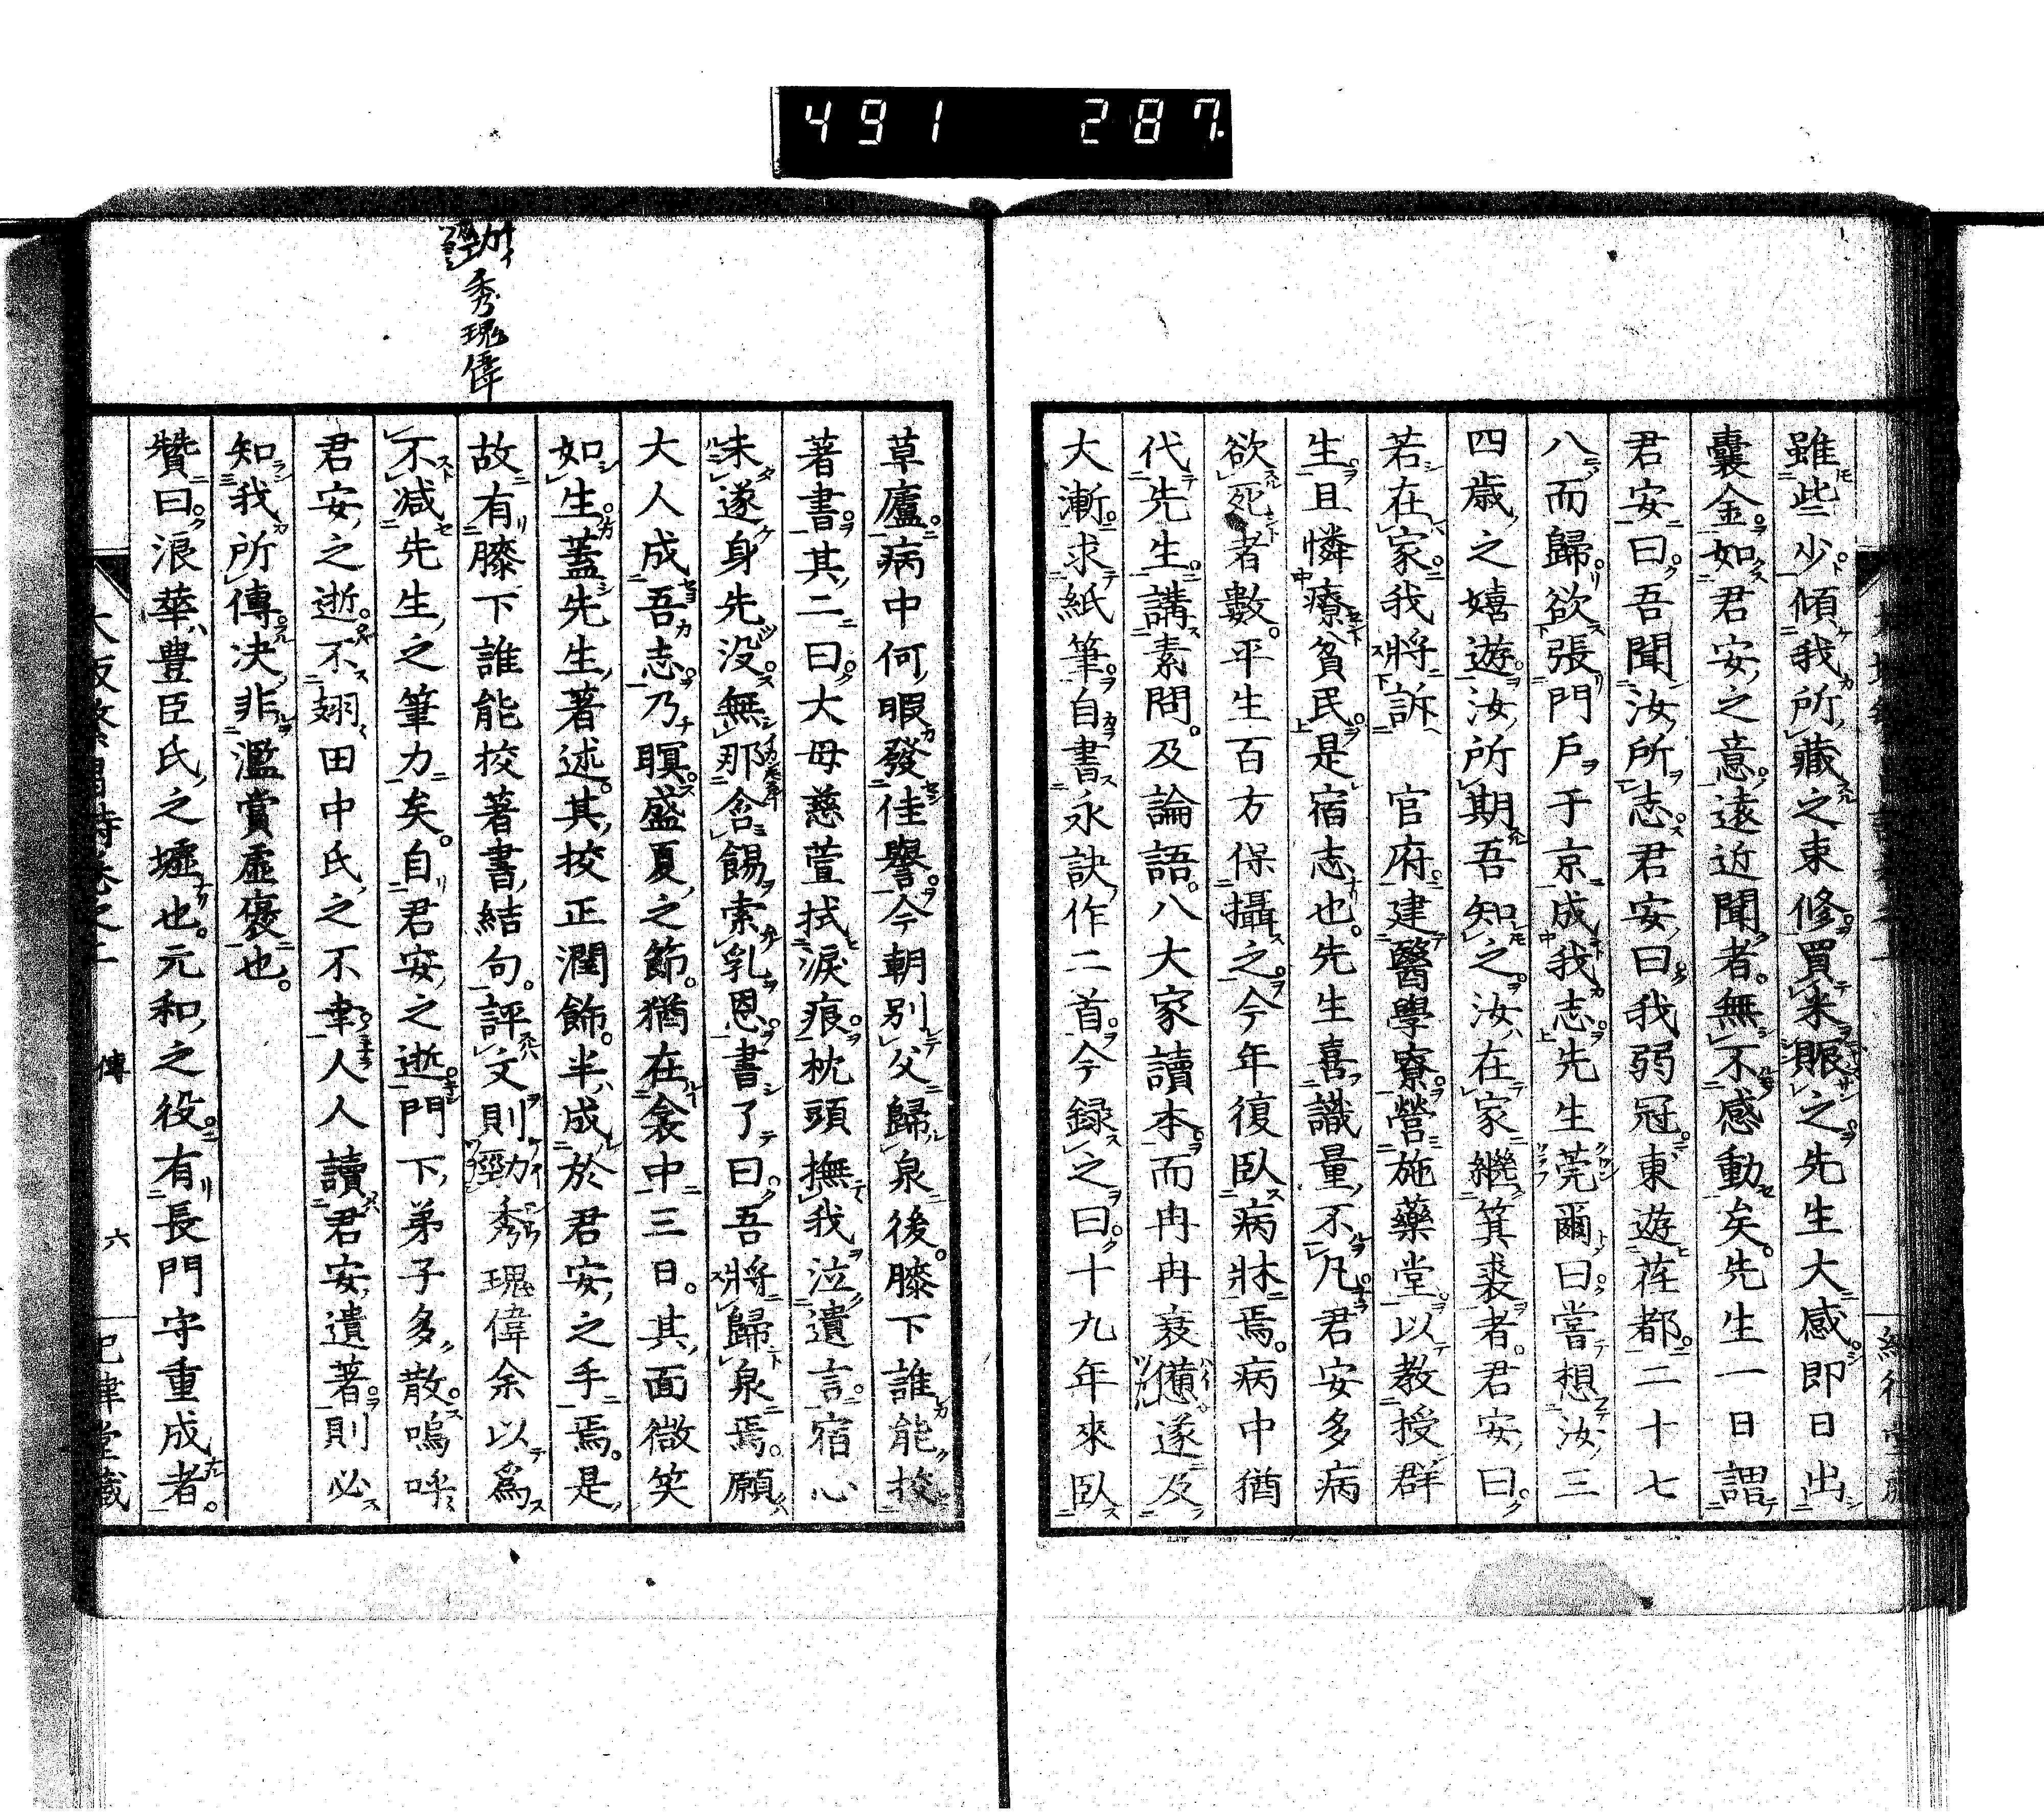 491 287
雖些少傾我所藏之束修買米賑之先生大感即日出
囊金如君安之意遠近聞者無不感動矣先生一日謂
君安曰吾聞汝所志君安曰我弱冠東遊荏都二十七
八而歸欲張門戶于京成我志先生莞爾曰嘗想汝三
四歲之嬉遊汝所期吾知之汝在家繼箕裘者君安曰
若在家我將訴 官府建醫學寮營施藥堂以教授群
生且憐療貧民是宿志也先生喜識量不凡君安多病
欲死者數平生百方保攝之今年復臥病牀焉病中猶
代先生講素問及論語八大家讀本而冉冉衰憊遂及
大漸求紙筆自書永訣作二首今録之曰十九年來臥
草廬病中何暇發佳譽今朝別父歸泉後膝下誰能挍
著書其二曰大母慈萱拭淚痕枕頭撫我泣遺言宿心
未遂身先沒無那含餳索乳恩書了曰吾將歸泉焉願
大人成吾志乃瞑盛夏之節猶在衾中三日其面微笑
如生蓋先生著述其挍正潤飾半成於君安之手焉是
故有膝下誰能挍著書結句評文則勁秀瑰偉余以爲
不減先生之筆力矣自君安之逝門下弟子多散嗚呼
君安之逝不翅田中氏之不幸人人讀君安遺著則必
知我所傳決非濫賞虛褒也
贊曰浪華豊臣氏之墟也元和之役有長門守重成者
傳 六
勁秀瑰偉